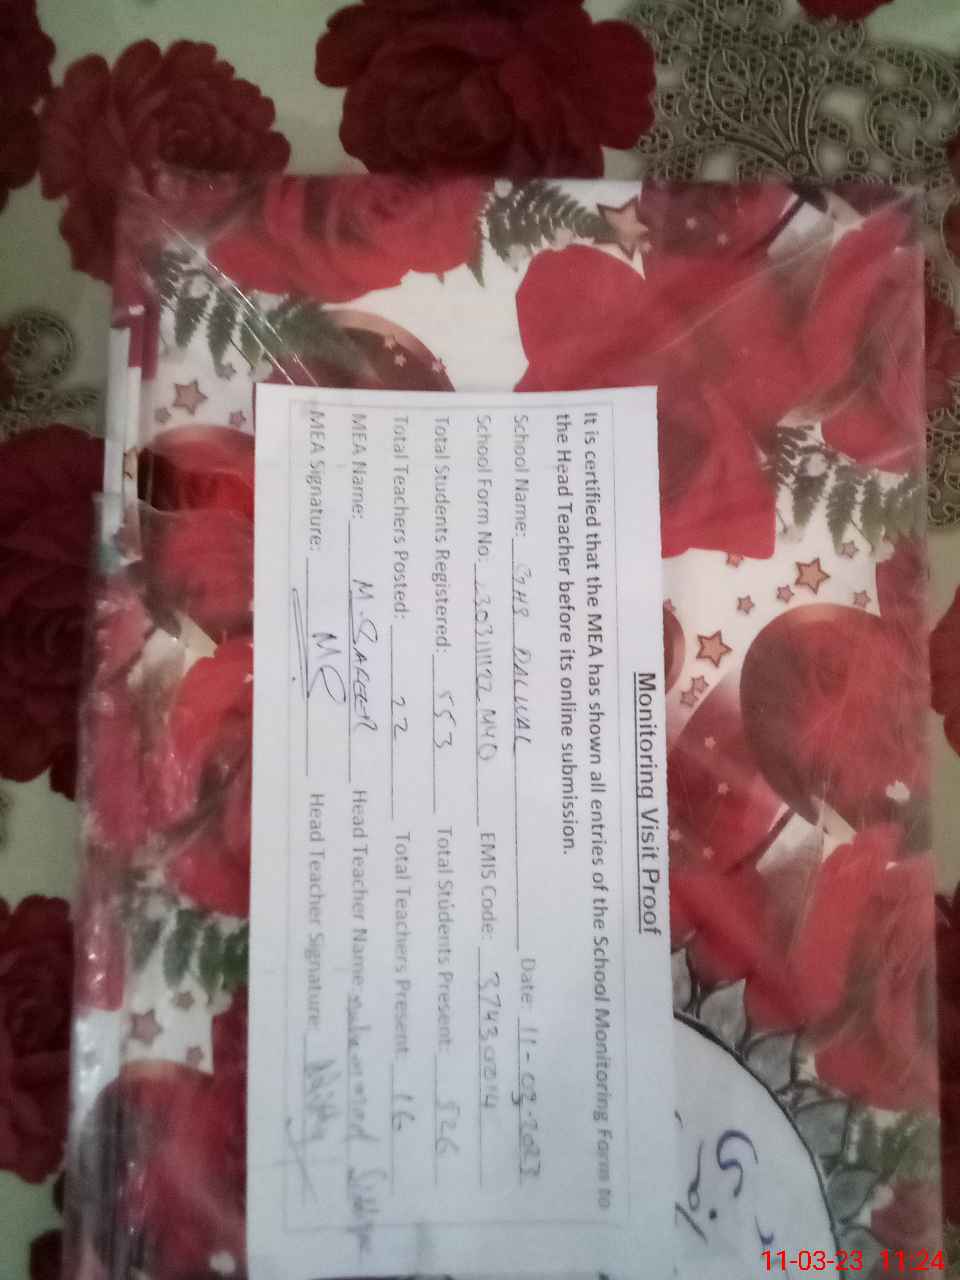 Monitoring Visit Proof
It is certified that the MEA has shown all entries of the School Monitoring Form to
the Head Teacher before its online submission.
School Name: GHS DALWAL Date: 11-03-2023
School Form No: EMIS Code: 37430014
Total Students Registered: 553 Total Students Present: 526
Total Teachers Posted: 22 Total Teachers Present 16
MEA Name: M. SAFEER Head Teacher Name:
MEA Signature: MS Head Teacher Signature:
11-03-23 11:24